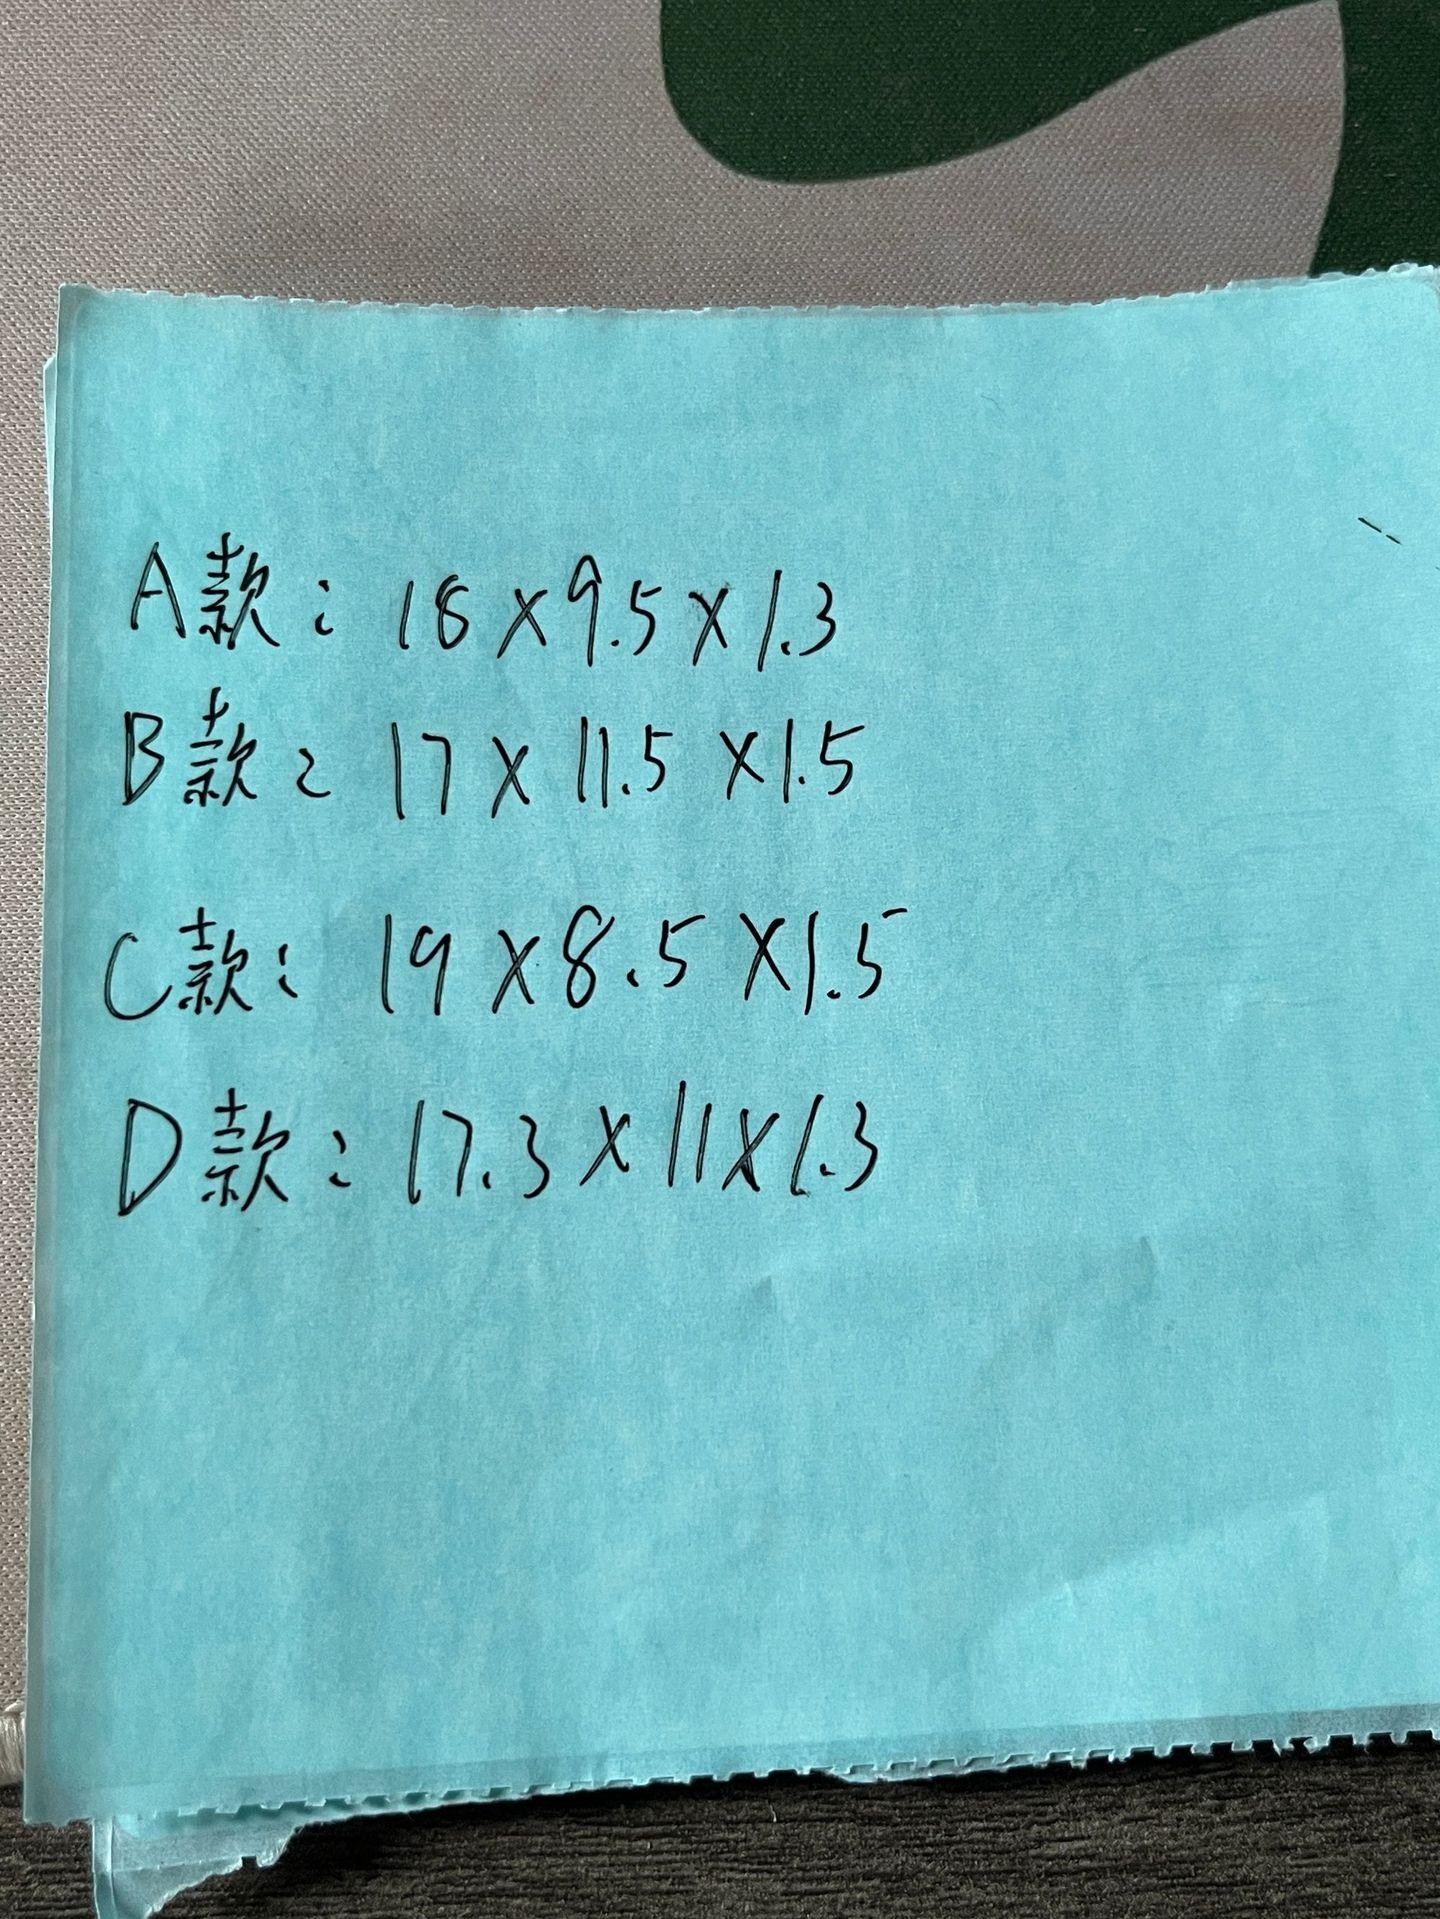 A款：18×9.5×1.3
B款：17×11.5×1.5
C款：19×8.5×1.5
D款：17.3×11×1.3